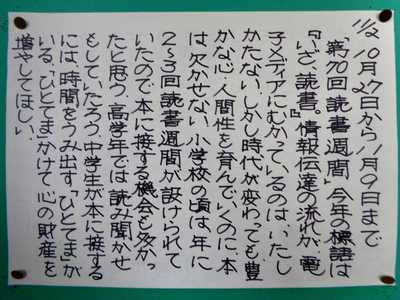 11/2 10月27日から11月9日まで
「第70回読書週間」今年の標語は
『いざ、読書。』情報伝達の流れが、電
子メディアにむかっているのは、いたし
かたない。しかし時代が変わっても、豊
かな心、人間性を育んでいくのに、本
は欠かせない。小学校の頃は、年に
2〜3回読書週間が設けられて
いたので、本に接する機会も多かっ
たと思う。高学年では、読み聞かせ
もしていたろう。中学生が本に接する
には、時間をうみ出す「ひとてま」が
いる。「ひとてま」かけて、心の財産を
増やしてほしい。